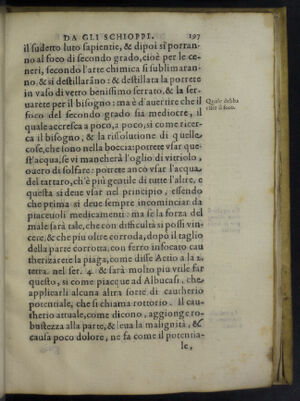 DA GLI SCHIOPPI. 197
il sudetto luto sapiente, & dipoi si porran-
no al foco di secondo grado, cioè per le ce-
neri, secondo l'arte chimica si sublimaran-
no, & si destillarãno: & destillata la potrete
in vaso di vetro benissimo serrato, & la ser-
uarete per il bisogno: ma è d'auertire che il
foco del secondo grado sia mediocre, il
quale accresca a poco, a poco, si come ricer-
ca il bisogno, & la risolutione di quelle
cose, che sono nella boccia: potrete vsar que
st'acqua, se vi mancherà l'oglio di vitriolo,
ouero di solfare: potrete anco vsar l'acqua
del tartaro, ch'è più gentile di tutte l'altre, e
questa si deue vsar nel principio, essendo
che prima si deue sempre incominciar da
piaceuoli medicamenti: ma se la forza del
male sarà tale, che con difficultà si possi vin-
cere, & che piu oltre corroda, dopò il taglio
della parte corrotta, con ferro infocato cau
therizarete la piaga, come disse Aetio a la 2.
tetra. nel ser. 4. & sarà molto più vtile far
questo, si come piacque ad Albucasi, che
applicarli alcuna altra sorte di cautherio
potentiale, che si chiama rottorio. Il cau-
therio attuale, come dicono, aggionge ro-
bustezza alla parte, & leua la malignità, &
causa poco dolore, ne fa come il potentia-
le,
Quale debba
esser il foco.